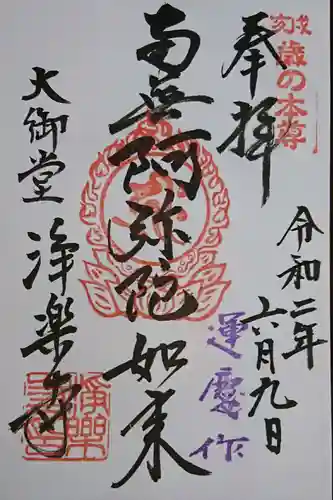 戌亥歳の本尊
奉拝
令和二年
六月九日
南無阿弥陀如来
運慶作
大御堂
浄楽寺
浄樂寺印